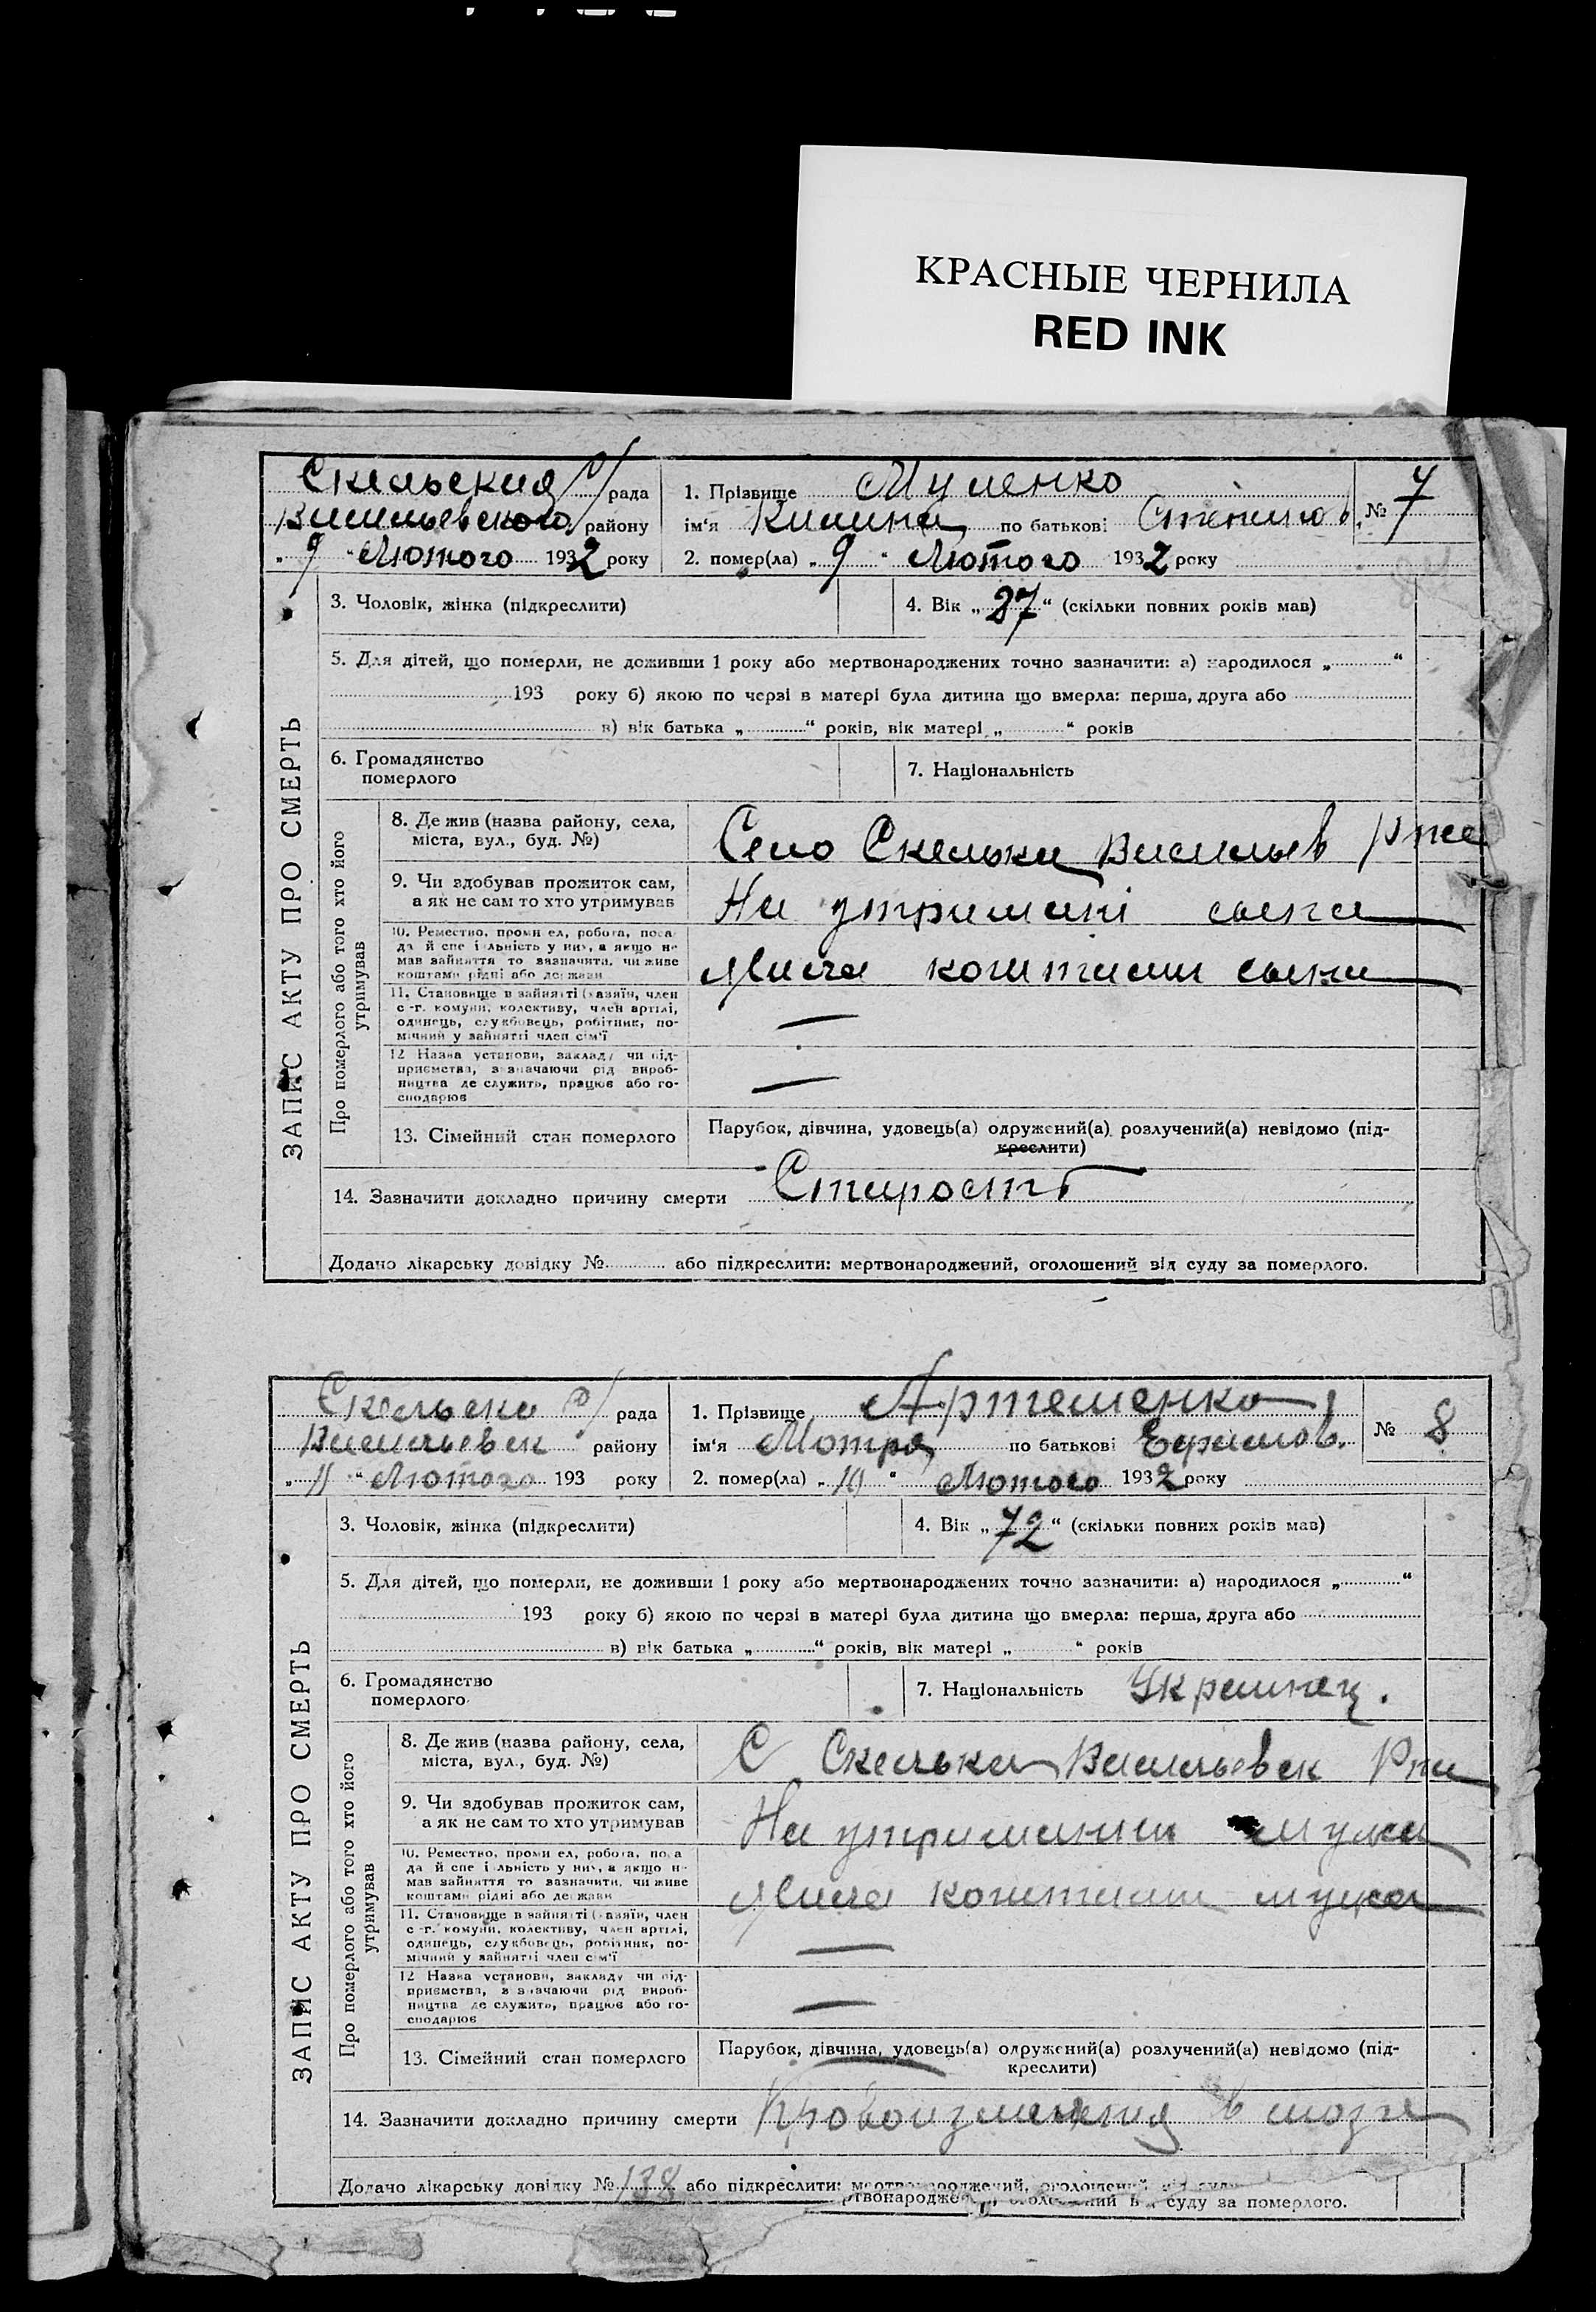 КРАСНЫЕ ЧЕРНИЛА
RED INK
Скельская с/рада
Васильевского району
„ 9 “ Лютого 1932 року
1. Прізвище Муленко
ім‘я Килина по батькові
№ 7
2. помер(ла) „ 9 “ Лютого 1932 року
3. Чоловік, жінка (підкреслити)
4. Вік „ 87 “ (скільки повних років мав)
5. Для дітей, що померли, не доживши 1 року або мертвонароджених точно зазначити: а) народилося „ “
193 року б) якою по черзі в матері була дитина що вмерла: перша, друга або
в) вік батька „ “ років, вік матері „ “ років
6. Громадянство
померлого
7. Національність
ЗАПИС АКТУ ПРО СМЕРТЬ
Про померлого або того хто його
утримував
8. Де жив (назва району, села,
міста, вул., буд. №)
Село Скельки Васильев р-на
9. Чи здобував прожиток сам,
а як не сам то хто утримував
На утримані сына
10. Ремество, промисел, робота, поса-
да й спеціяльність у них, а якщо не
мав зайняття то зазначити, чи живе
коштами рідні або держави
Жила коштами сына
11. Становище в зайнятті (хазяїн, член
с.-г. комуни, колективу, член артілі,
одинець, службовець, робітник, по-
мічний у зайнятті член сім‘ї
—
12 Назва установи, закладу чи під-
приємства, зазначаючи рід вироб-
ництва де служить, працює або го-
сподарює
—
13. Сімейний стан померлого
Парубок, дівчина, удовець(а) одружений(а) розлучений(а) невідомо (під-
креслити)
14. Зазначити докладно причину смерти Старость
Додано лікарську довідку № або підкреслити: мертвонароджений, оголошений від суду за померлого.
Скельска с/рада
Васильевск району
„ 11 “ Лютого 193 року
1. Прізвище Артеменко
ім‘я Мотря по батькові Ефимов.
№ 8
2. помер(ла) „ 10 “ Лютого 1932 року
3. Чоловік, жінка (підкреслити)
4. Вік „ 72 “ (скільки повних років мав)
5. Для дітей, що померли, не доживши 1 року або мертвонароджених точно зазначити: а) народилося „ “
193 року б) якою по черзі в матері була дитина що вмерла: перша, друга або
в) вік батька „ “ років, вік матері „ “ років
6. Громадянство
померлого
7. Національність Украинец.
ЗАПИС АКТУ ПРО СМЕРТЬ
Про померлого або того хто його
утримував
8. Де жив (назва району, села,
міста, вул., буд. №)
С Скельки Васильевск Р-на
9. Чи здобував прожиток сам,
а як не сам то хто утримував
На утримании мужа
10. Ремество, промисел, робота, поса-
да й спеціяльність у них, а якщо не
мав зайняття то зазначити, чи живе
коштами рідні або держави
Жила коштами мужа
11. Становище в зайнятті (хазяїн, член
с.-г. комуни, колективу, член артілі,
одинець, службовець, робітник, по-
мічний у зайнятті член сім‘ї
—
12 Назва установи, закладу чи під-
приємства, зазначаючи рід вироб-
ництва де служить, працює або го-
сподарює
—
13. Сімейний стан померлого
Парубок, дівчина, удовець(а) одружений(а) розлучений(а) невідомо (під-
креслити)
14. Зазначити докладно причину смерти в мозге
Додано лікарську довідку № 138 або підкреслити: мертвонароджений, оголошений від суду
ртвонароджений, оголошений від суду за померлого.